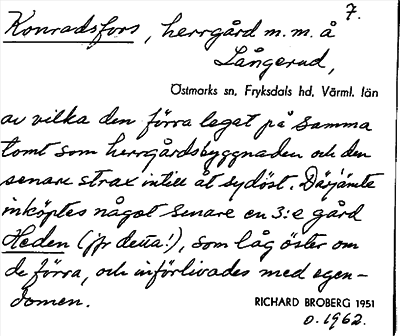 7.
Konradsfors, herrgård m.m. å
Långerud,
Östmarks sn, Fryksdals hd, Värml. län
av vilka den förra legat på samma
tomt som herrgårdsbyggnaden och den
senare strax intill åt sydöst. Därjämte
inköptes något senare en 3:e gård
Heden (jfr detta!), som låg öster om
de förra, och införlivades med egen-
domen.
RICHARD BROBERG 1951
o. 1962.